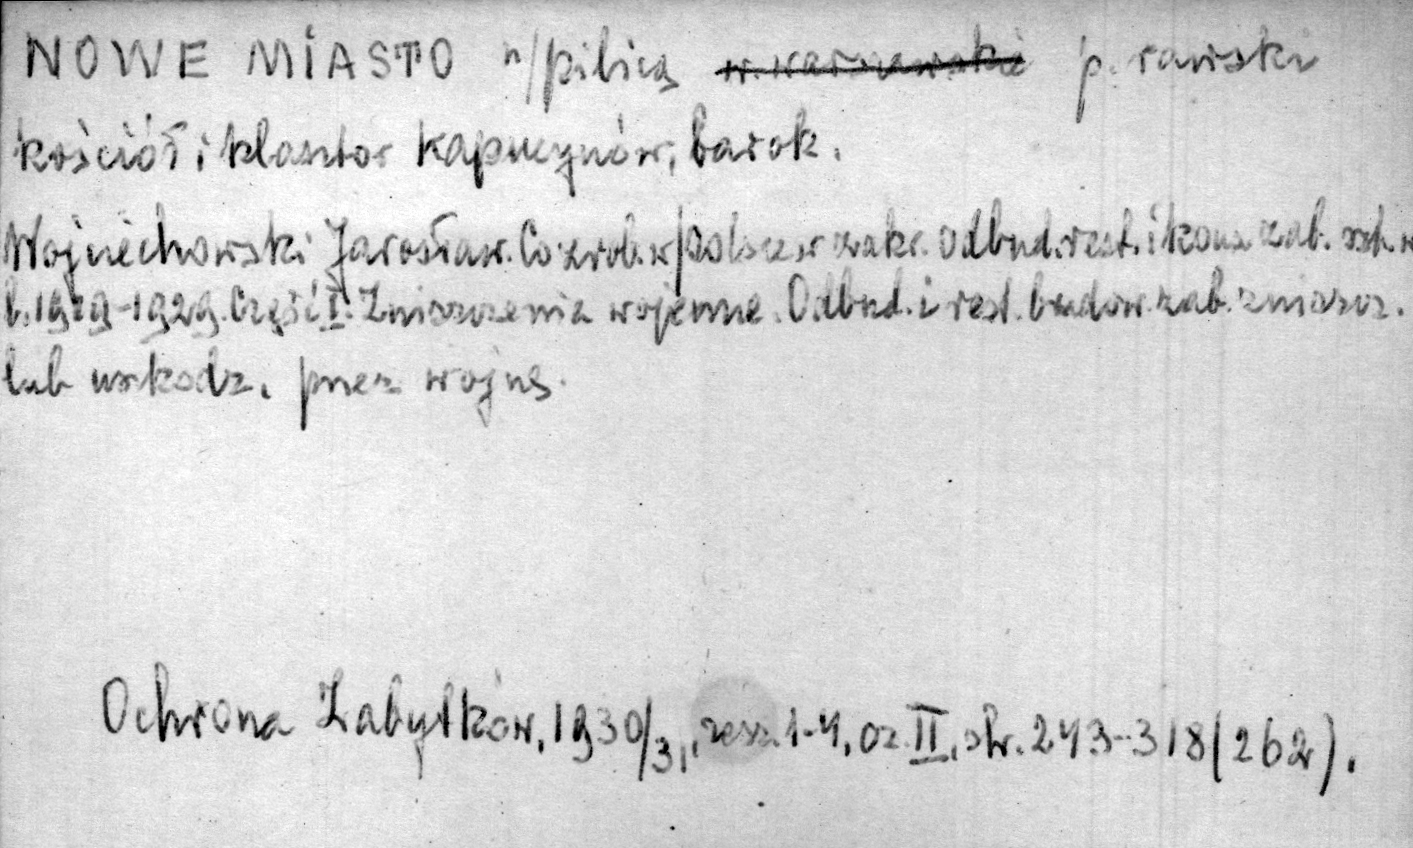 NOWE MIASTO n/pilicą w. warszawskie p. rawski
kościół i klasztor Kapucynów, barok.
Wojciechowski Jarosław. Co zrob. w Polsce w zakr. odbud. rest. i kons. zab. szt. w
l. 1919-1929. Część I. Zniszczenia wojenne. Odbud. i rest. budow. zab. zniszcz.
lub uszkodz. przez wojnę.
Ochrona Zabytków, 1930/31, zesz. 1-4, cz. II, str. 243-318 (262).